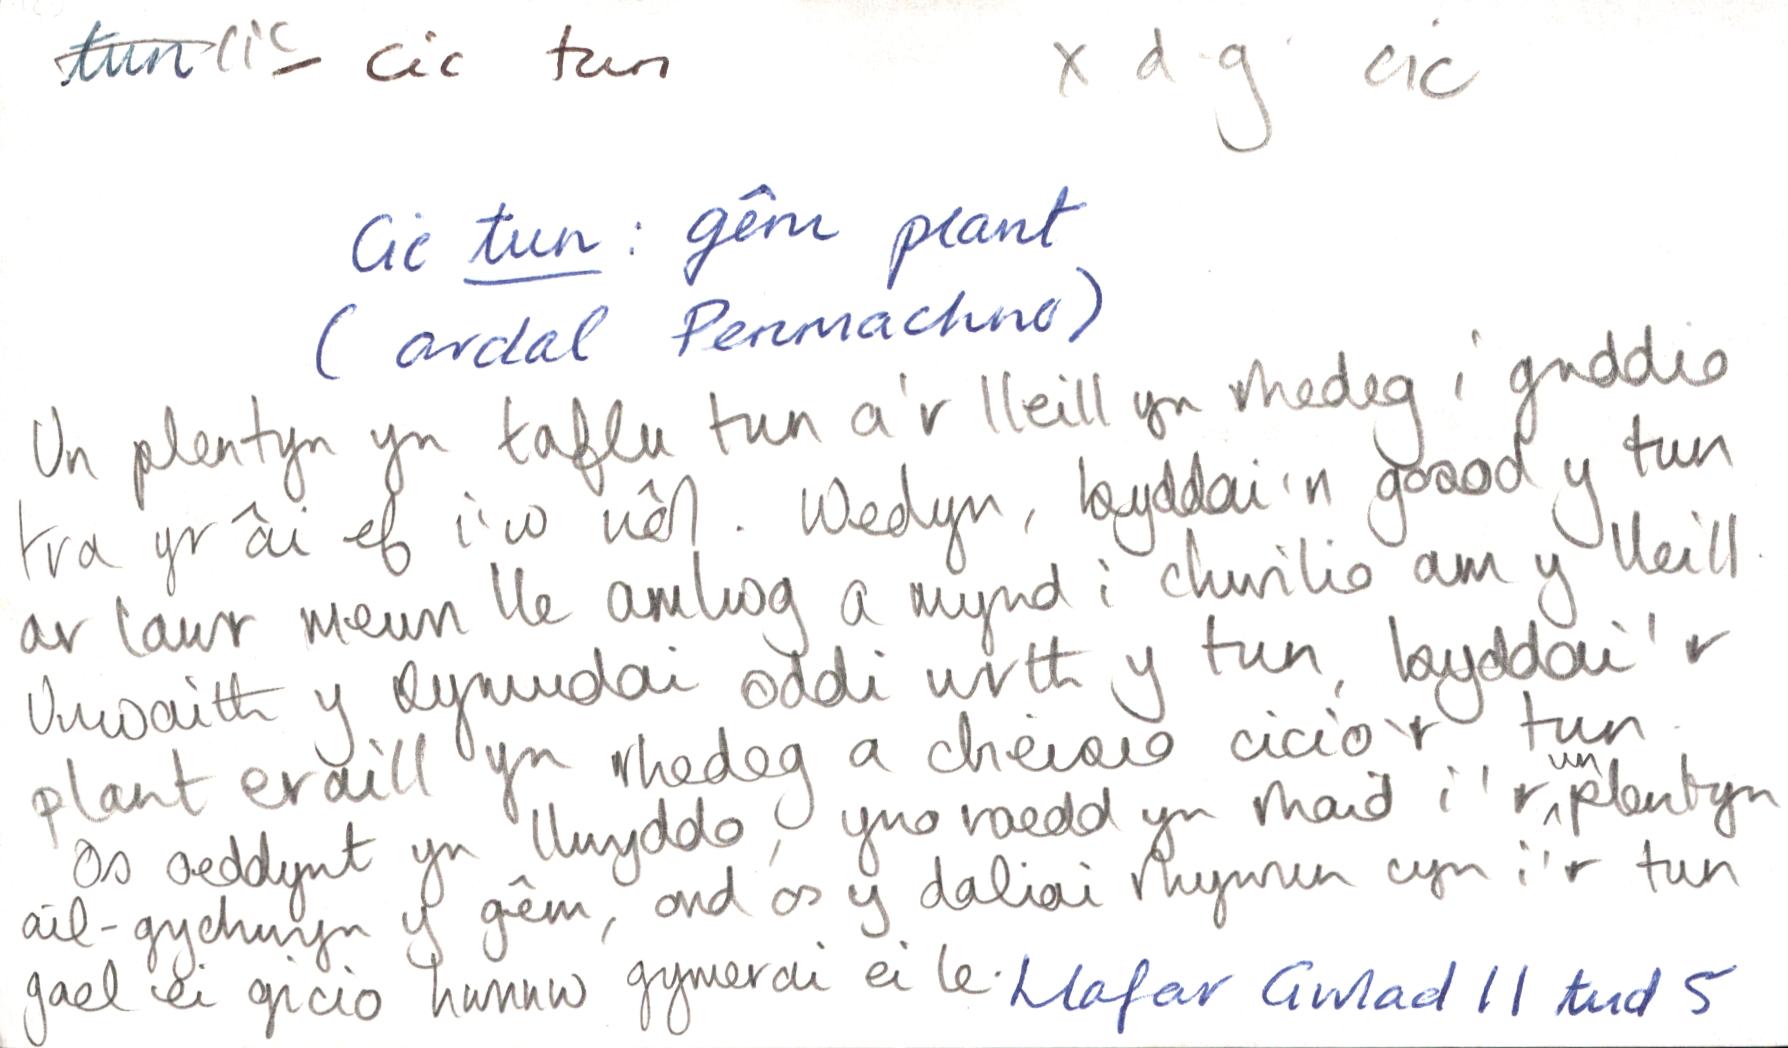 tun cic cic tun x d.g. cic
Cic tun : gêm plant
( ardal Penmachno )
Un plentyn yn taflu tun a'r lleill yn rhedeg i guddio
tra yr âi ef i'w nôl. Wedyn, byddai'n gosod y tun
ar lawr mewn lle amlwg a mynd i chwilio am y lleill.
Unwaith y symudai oddi wrth y tun, byddai'r
plant eraill yn rhedeg a cheisio cicio'r tun.
Os oeddynt yn llwyddo, yno roedd yn rhaid i'r un plentyn
ail-gychwyn y gêm, ond os y daliai rhywun cyn i'r tun
gael ei gicio hwnnw gymerai ei le. Llafar Gwlad 11 tud 5